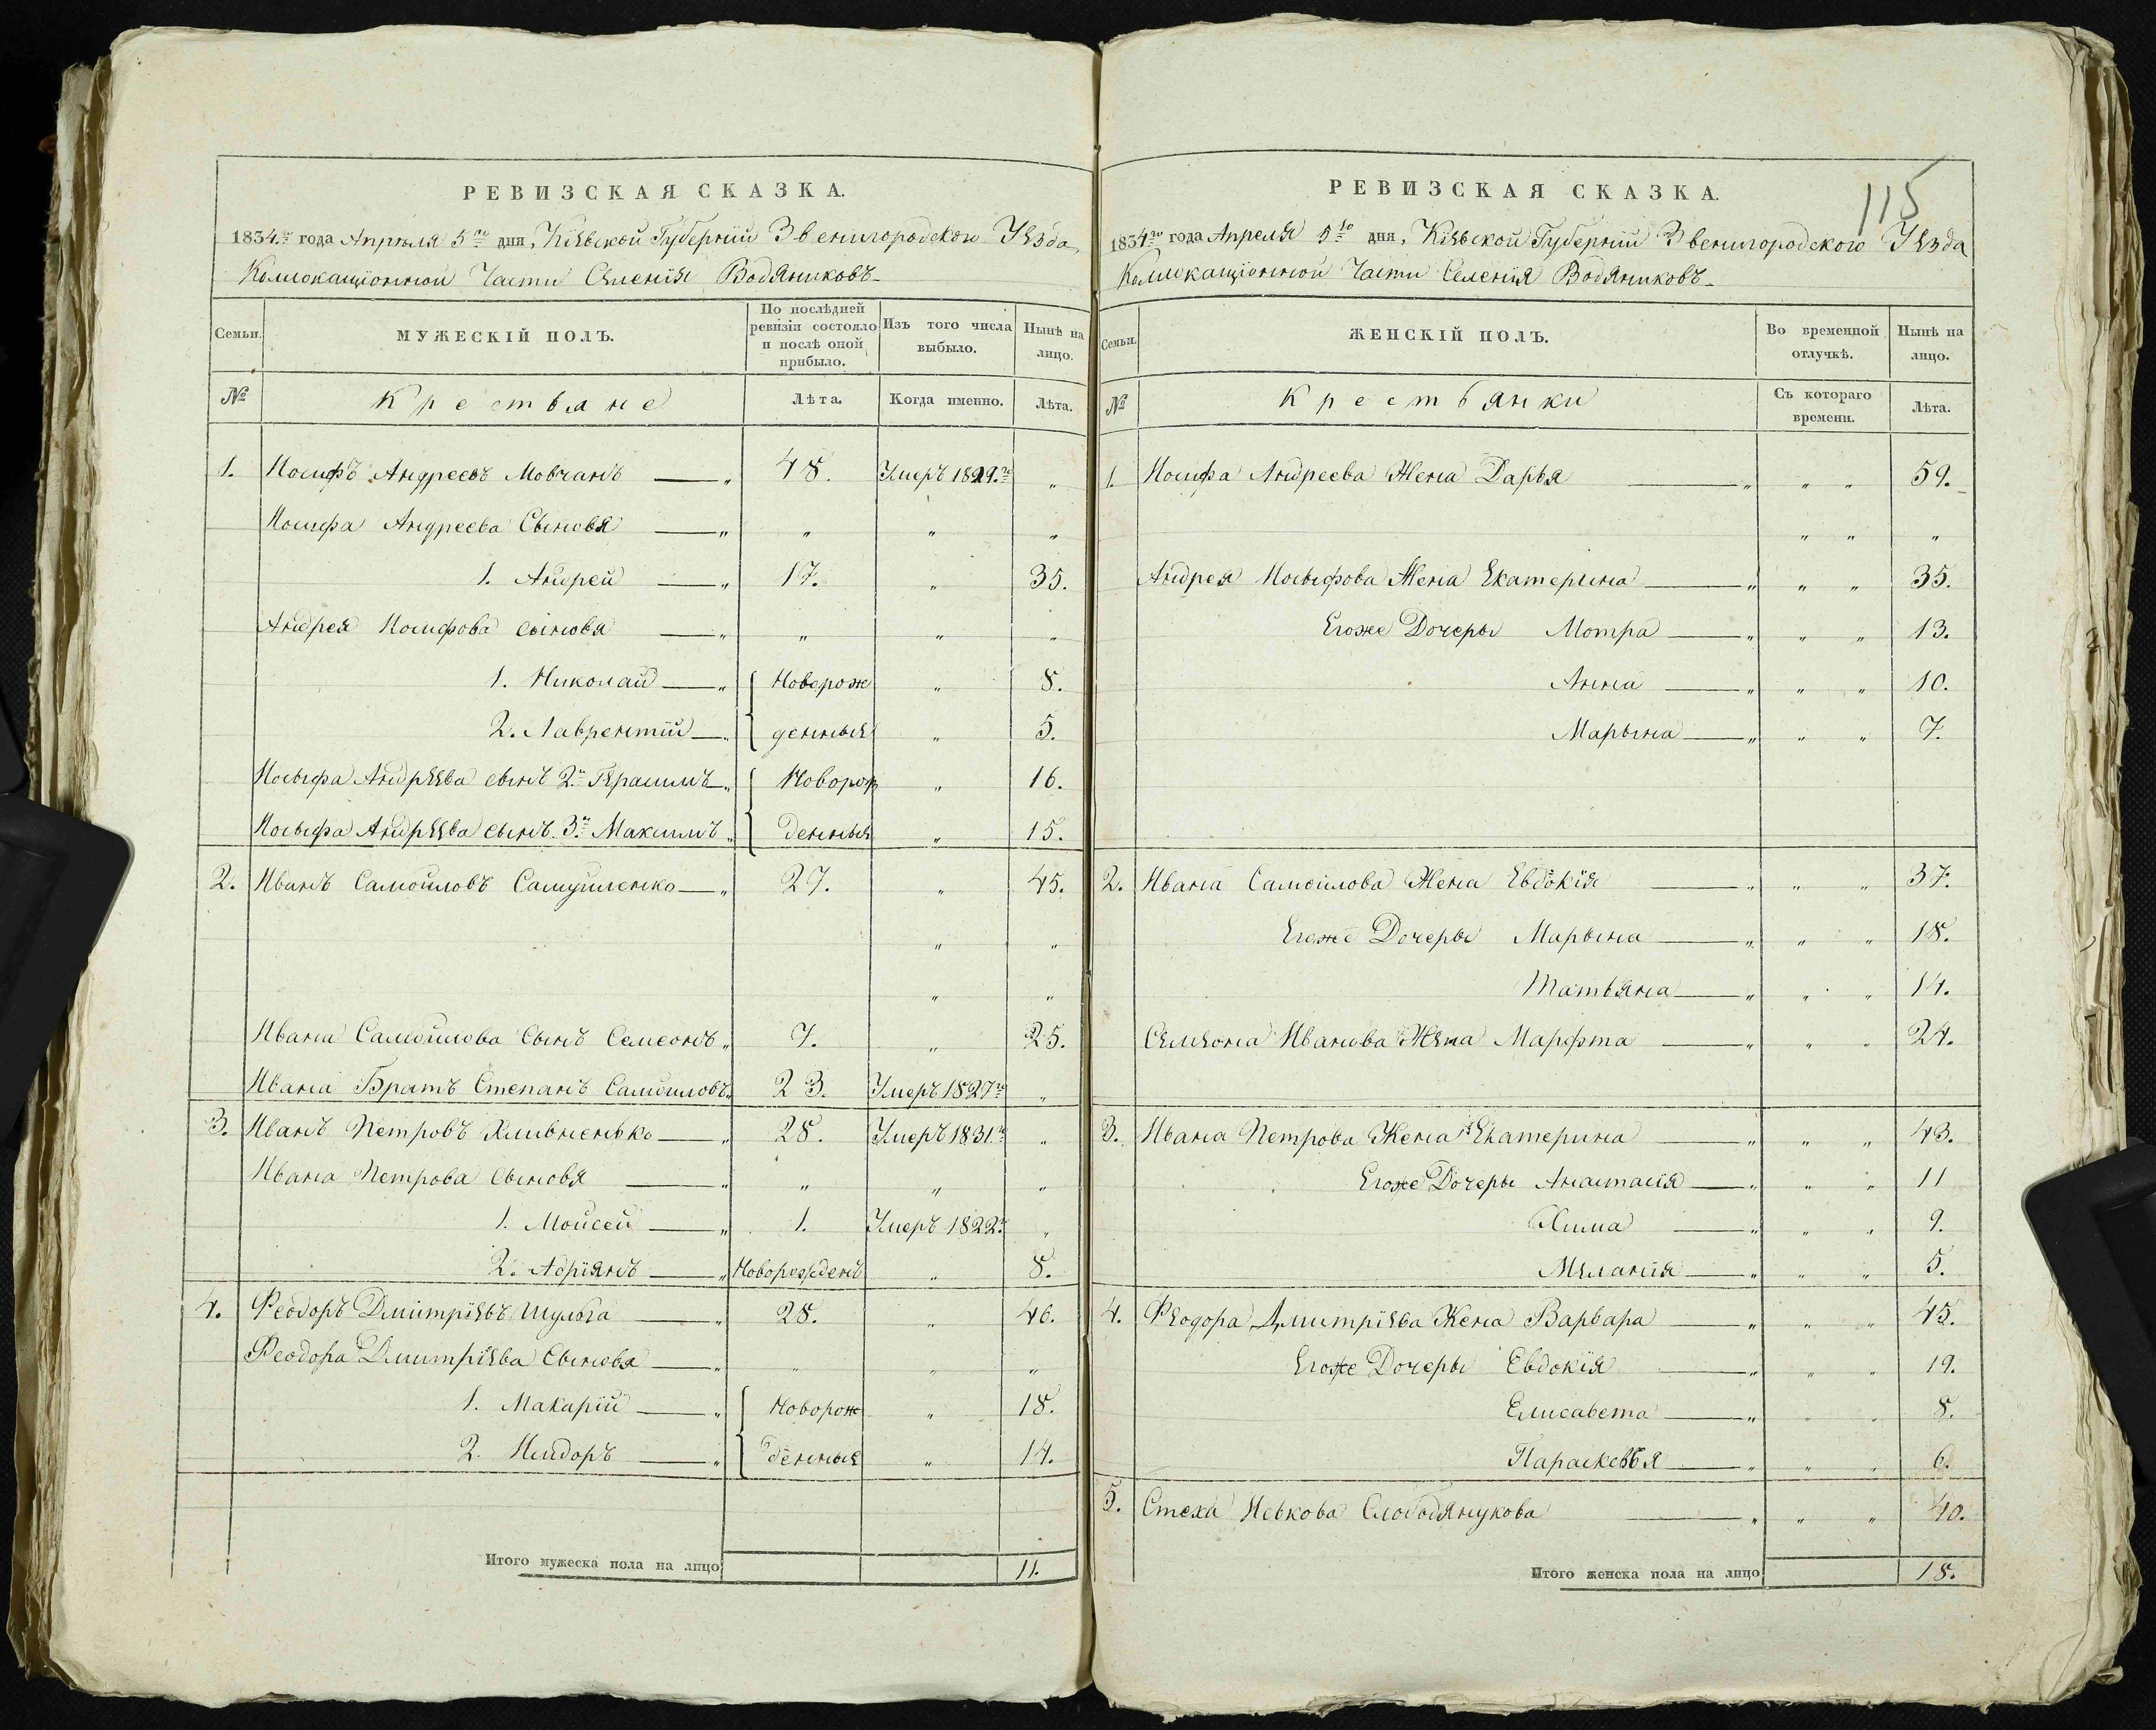 РЕВИЗСКАЯ СКАЗКА.
1834.го года Апреля 5го дня, Кіевской Губерніи Звенигородскои Уезда
Коллокаціонной Части Селенія Водяниковъ
Семьи.
МУЖЕСКІЙ ПОЛЪ.
По послѣдней ревизіи состояло и послѣ оной прибыло.
Изъ того числа выбыло.
Нынѣ на лицо.
№ Крестьяне Лѣта. Когда именно. Лѣта.
1. Иосифъ Андреевъ Мовчанъ — „ 48. Умеръ 1829.го „
Иосифа Андреева Сыновя — „ „ „ „
1. Андрей — „ 17. „ 35.
Андрея Иосифова сыновя — „ „ „ „
1. Николай — „ Новорож „ 8.
2. Лаврентій — „ денныя „ 5.
Иосыфа Андреева сынъ 2й Герасимъ — „ Новорож „ 16.
Иосыфа Андреева сынъ 3й Максимъ „ денныя „ 15.
2. Иванъ Самойловъ Самуйленко — „ 27. „ 45.
„ „
„ „
Ивана Самойлова Сынъ Семеонъ „ 7. „ 25.
Ивана Братъ Степанъ Самойловъ „ 23. Умеръ 1827го „
3. Иванъ Петровъ Хливненько — „ 28. Умеръ 1831.го „
Ивана Петрова Сыновя — „ „ „ „
1. Мойсей — „ 1. Умеръ 1822.го „
2. Адріянъ — „ Новорожденъ „ 8.
4. Феодоръ Дмитріевъ Шульга — „ 28. „ 46.
Феодора Дмитріева Сыновя — „ „ „ „
1. Макарій — „ Новорож „ 18.
2. Исидоръ — „ денныя „ 14.
Итого мужеска пола на лицо 11.
115
РЕВИЗСКАЯ СКАЗКА.
1834го года Апреля 5го дня, Кіевской Губерніи Звенигородского Уезда
Коллокаціонной Части Селенія Водяниковъ
Семьи.
ЖЕНСКІЙ ПОЛЪ.
Во временной отлучкѣ.
Нынѣ на лицо.
№ Крестьянки Съ котораго времени. Лѣта.
1. Иосифа Андреева Жена Дарья — „ „ „ 59.
„ „ „
Андрея Иосыфова Жена Екатерина — „ „ „ 35.
Егоже Дочеры Мотра — „ „ „ 13.
Анна — „ „ „ 10.
Марына — „ „ „ 7.
2. Ивана Самойлова Жена Евдокія — „ „ „ 37.
Егоже Дочеры Марына — „ „ „ 18.
Татьяна — „ „ „ 14.
Семеона Иванова Жена Марфта — „ „ „ 24.
3. Ивана Петрова Жена Екатерина — „ „ „ 43.
Егоже Дочеры Анастасія — „ „ „ 11
Хима — „ „ „ 9.
Меланія — „ „ „ 5.
4. Феодора Дмитріева Жена Варвара — „ „ „ 45.
Егоже Дочеры Евдокія — „ „ „ 19.
Елисавета — „ „ „ 8.
Параскевья — „ „ „ 6.
5. Стеха Иевкова Слободянукова — „ „ „ 40.
Итого женска пола на лицо 18.